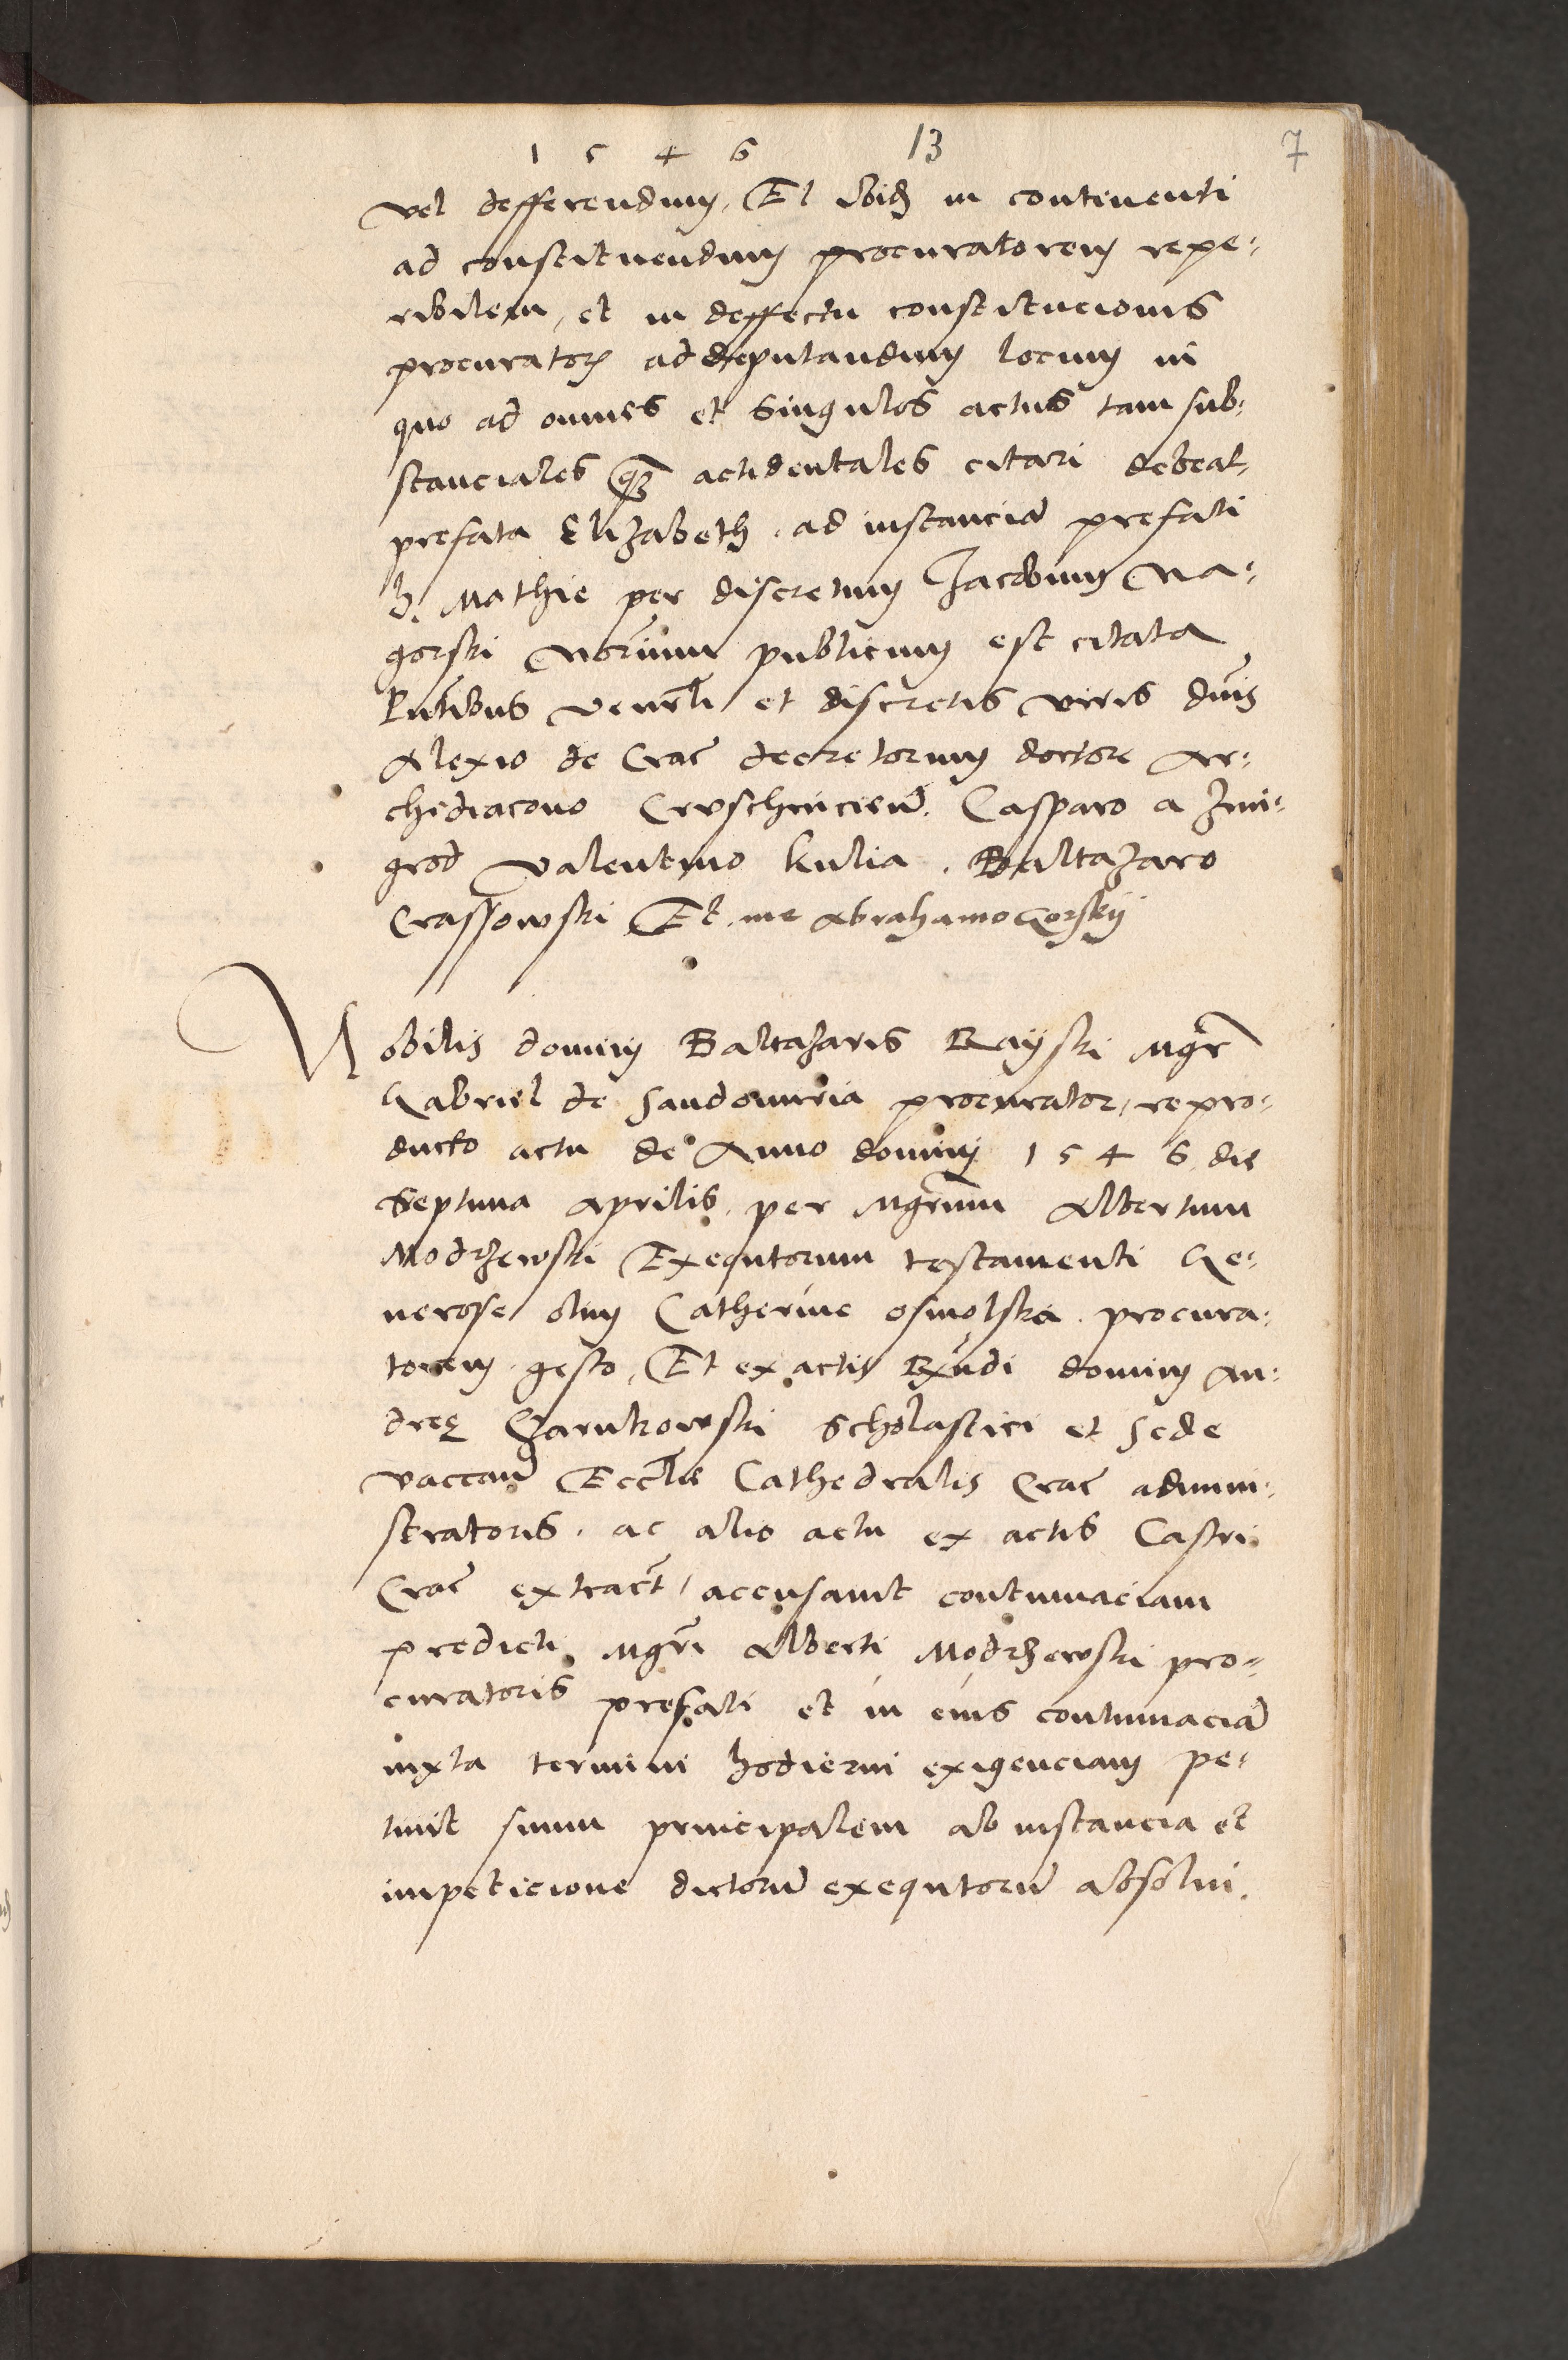 1 5 4 6 13 7
vel defferendum, Et ibidem in continenti
ad constituendum procuratorem repe-
ribilem, et in deffectu constitucionis
procuratoris ad deputandum locum in
quo ad omnes et singulos actus tam sub-
stanciales quam actidentales citari debeat
prefata Elizabeth. ad instanciam prefati
h. Mathie per discretum Jacobum Na-
gorski Notarium publicum est citata
pntibus venerli et discretis viris dnis
Alexio de Crac decretorum doctore Ar-
chediacono Cruschvicien. Casparo a Zmi-
grod Valentino Kulia. Baltazaro
Crassowski Et me Abrahamo Gorskij
Nobilis domini Baltazaris Rayski Mgr
Gabriel de Sandomiria procurator, repro-
ducto actu de Anno domini 1546 die
Septima Aprilis, per Mgrum Albertum
Modrzewski Exequtorum testamenti Ge-
nerose olim Catherine Osmolska. procura-
torem gesto, Et ex actis Rndi domini An-
dree Czarnkowski Scholastici et Sede
vaccan Ecclie Cathedralis Crac admini-
stratoris. ac alio actu ex actis Castri
Crac extract, accusavit contumaciam
predicti Mgri Alberti Modrzewski pro-
curatoris prefati et in eius contumaciam
iuxta termini hodierni exigenciam pe-
tiuit suum principalem ab instancia et
impeticione dictorum exequtorum absolui.